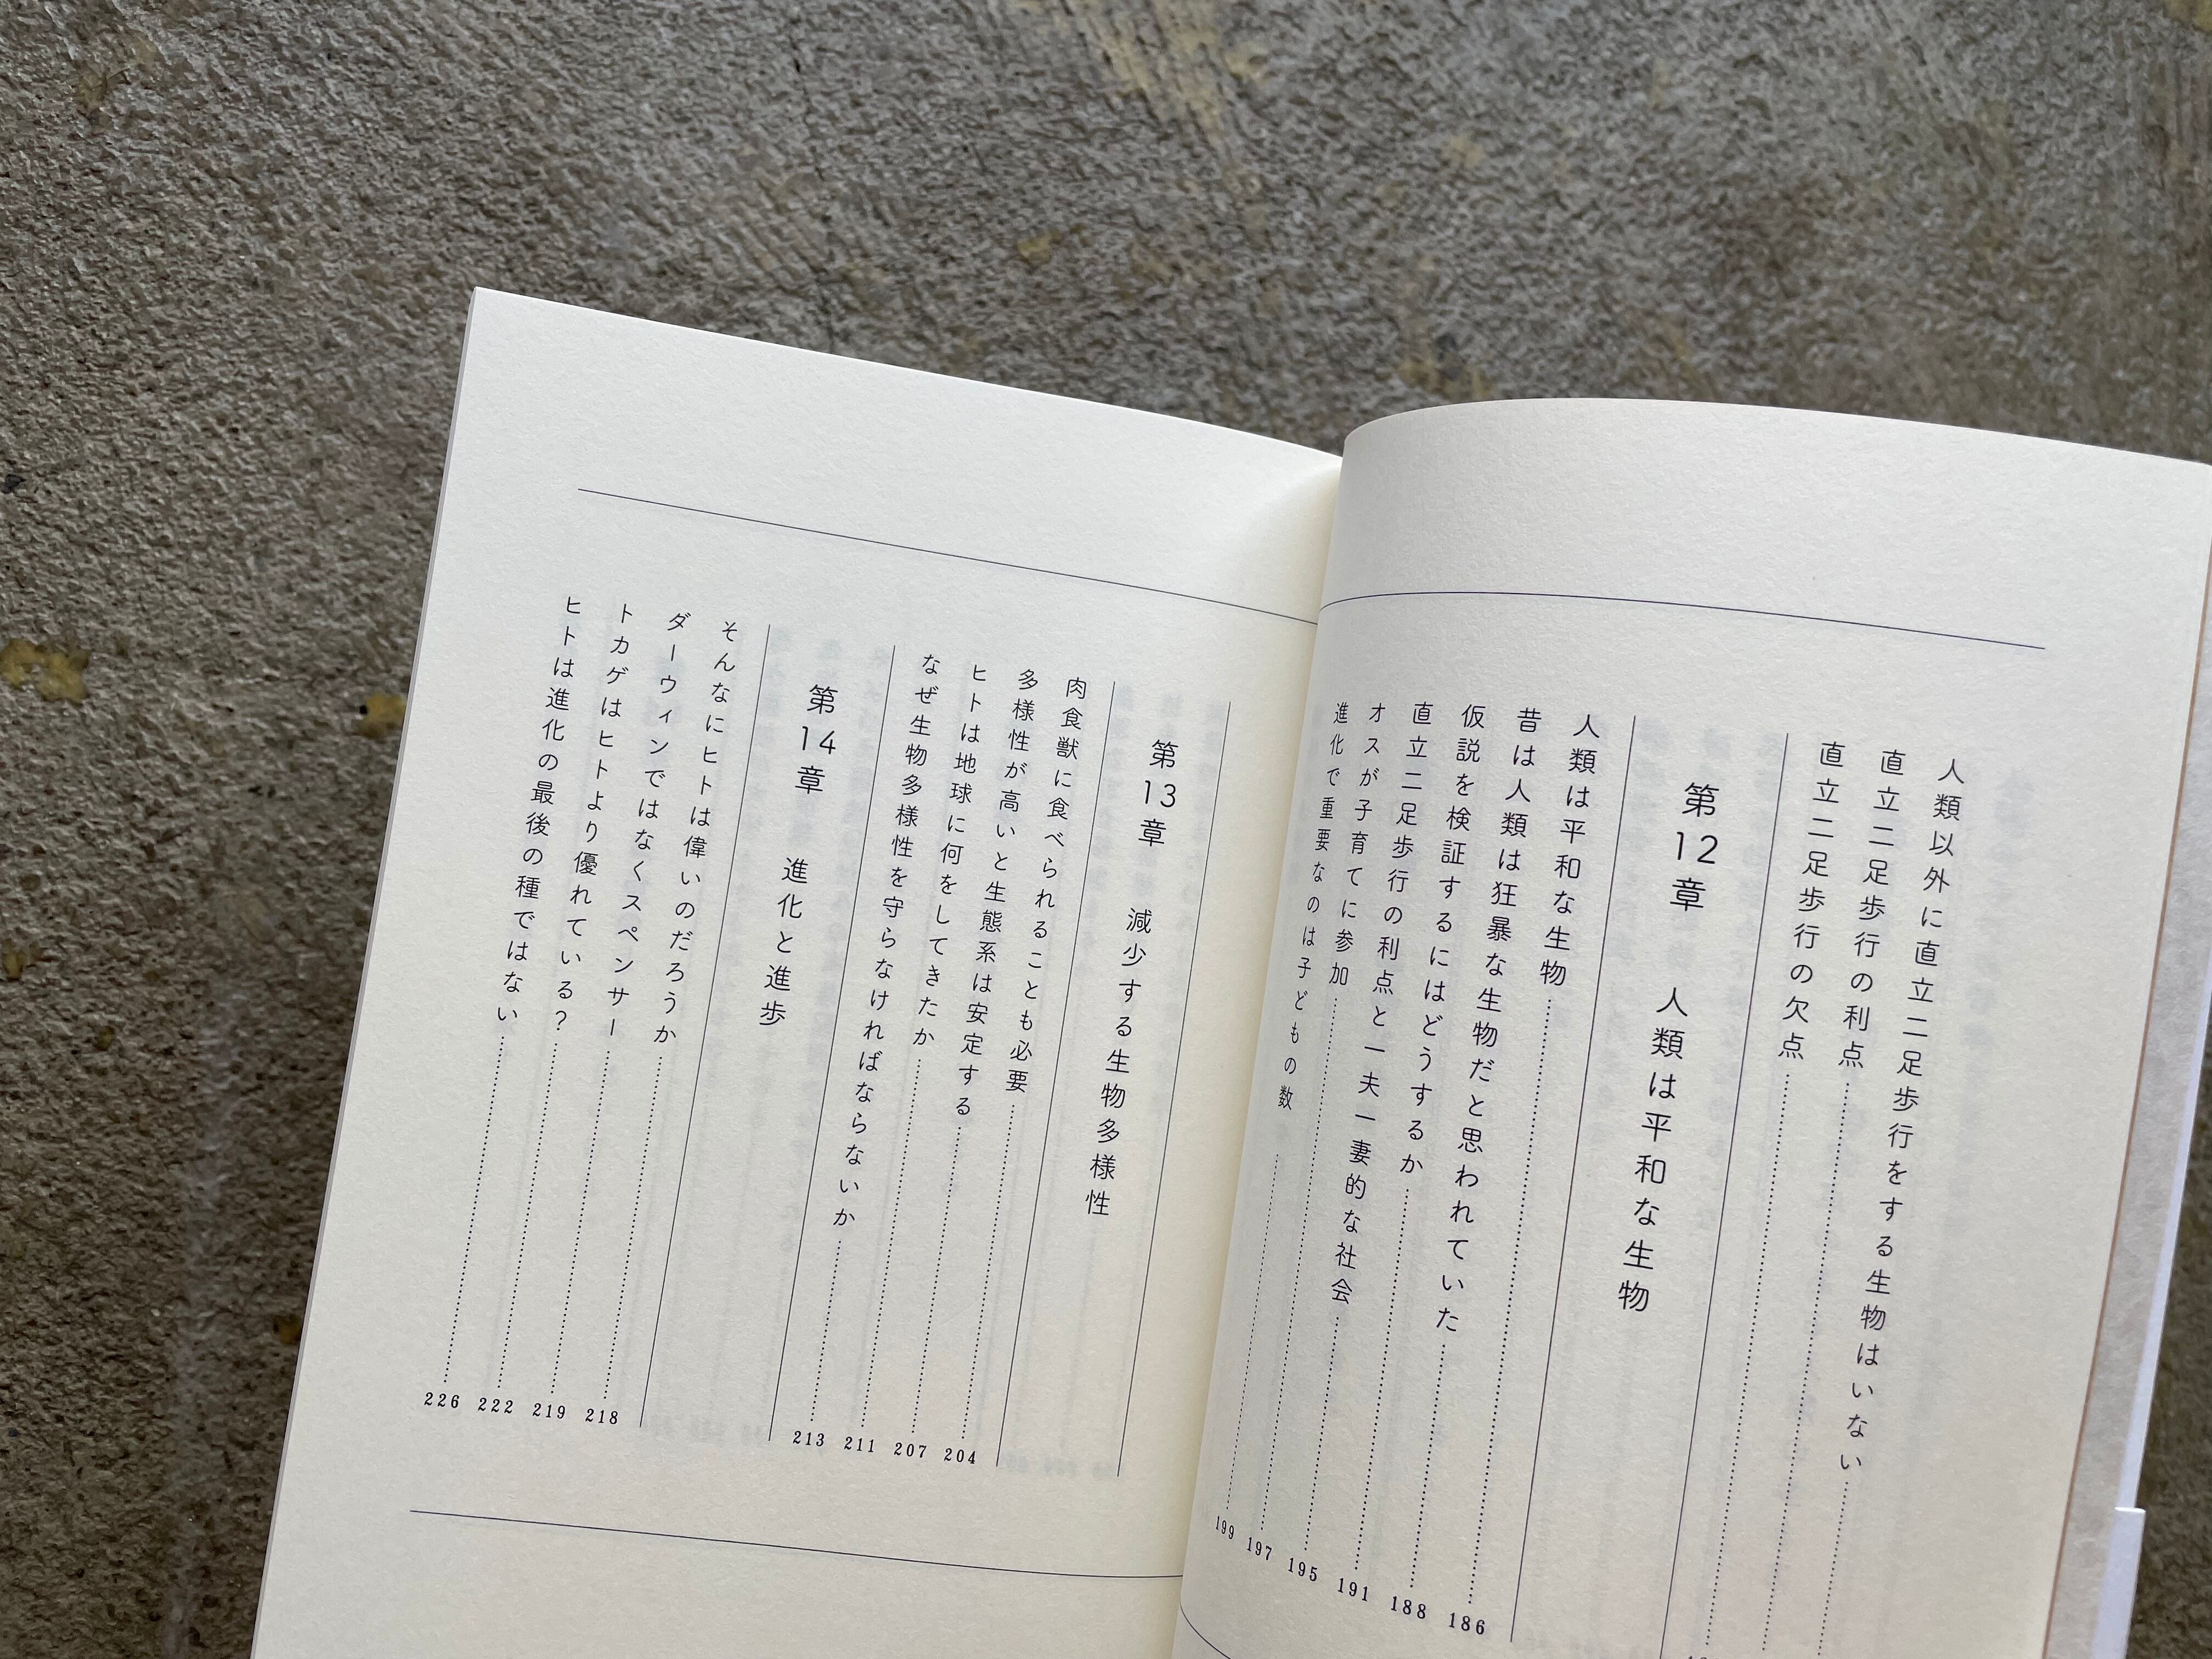 人類以外に直立二足歩行をする生物はいない
直立二足歩行の利点
直立二足歩行の欠点
第12章 人類は平和な生物
人類は平和な生物 186
昔は人類は狂暴な生物だと思われていた 188
仮説を検証するにはどうするか 191
直立二足歩行の利点と一夫一妻的な社会 195
オスが子育てに参加 197
進化で重要なのは子どもの数 199
第13章 減少する生物多様性
肉食獣に食べられることも必要 204
多様性が高いと生態系は安定する 207
ヒトは地球に何をしてきたか 211
なぜ生物多様性を守らなければならないか 213
第14章 進化と進歩
そんなにヒトは偉いのだろうか 218
ダーウィンではなくスペンサー 219
トカゲはヒトより優れている? 222
ヒトは進化の最後の種ではない 226